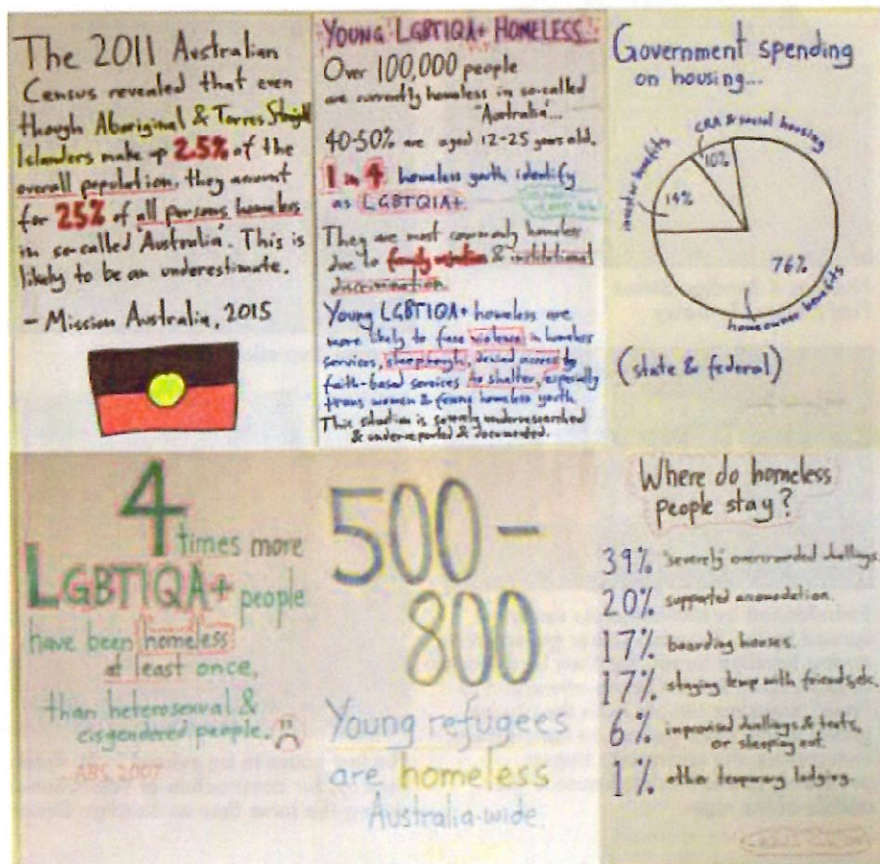 The 2011 Australian
Census revealed that even
though Aboriginal & Torres Strait
Islanders make up 2.5% of the
overall population, they amount
for 25% of all persons homeless
in so-called 'Australia'. This is
likely to be an underestimate.
- Mission Australia, 2015
YOUNG LGBTIQA+ HOMELESS...
Over 100,000 people
are currently homeless in so-called
'Australia'...
40-50% are aged 12-25 years old.
1 in 4 homeless youth identify
as LGBTQIA+.
They are most commonly homeless
due to family rejection & institutional
discrimination.
Young LGBTIQA+ homeless are
more likely to face violence in homeless
services, sleep rough, denied access by
faith-based services to shelter, especially
trans women & young homeless youth.
This situation is severely underresearched
& underreported & documented.
Government spending
on housing...
CRA & social housing
10%
investor benefits
14%
76%
homeowner benefits
(state & federal)
4
times more
LGBTIQA+ people
have been homeless
at least once,
than heterosexual &
cisgendered people.
- ABS, 2007
500-
800
Young refugees
are homeless
Australia-wide.
Where do homeless
people stay?
39% 'severely' overcrowded dwellings.
20% supported accomodation.
17% boarding houses.
17% staying temp with friends, etc.
6% improvised dwellings & tents,
or sleeping out.
1% other temporary lodging.